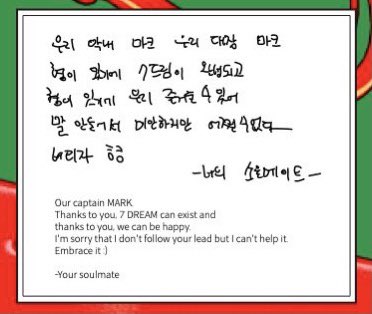 우리 막내 마크 우리 대장 마크
형이 있기에 7드림이 완성되고
형이 있기에 우리 즐거울 수 있어
말 안들어서 미안하지만 어쩔 수 없다
버티자 흐긓
-너의 소울메이트-
Our captain MARK
Thanks to you, 7 DREAM can exist and
thanks to you, we can be happy.
I'm sorry that I don't follow your lead but I can't help it.
Embrace it :)
-Your soulmate